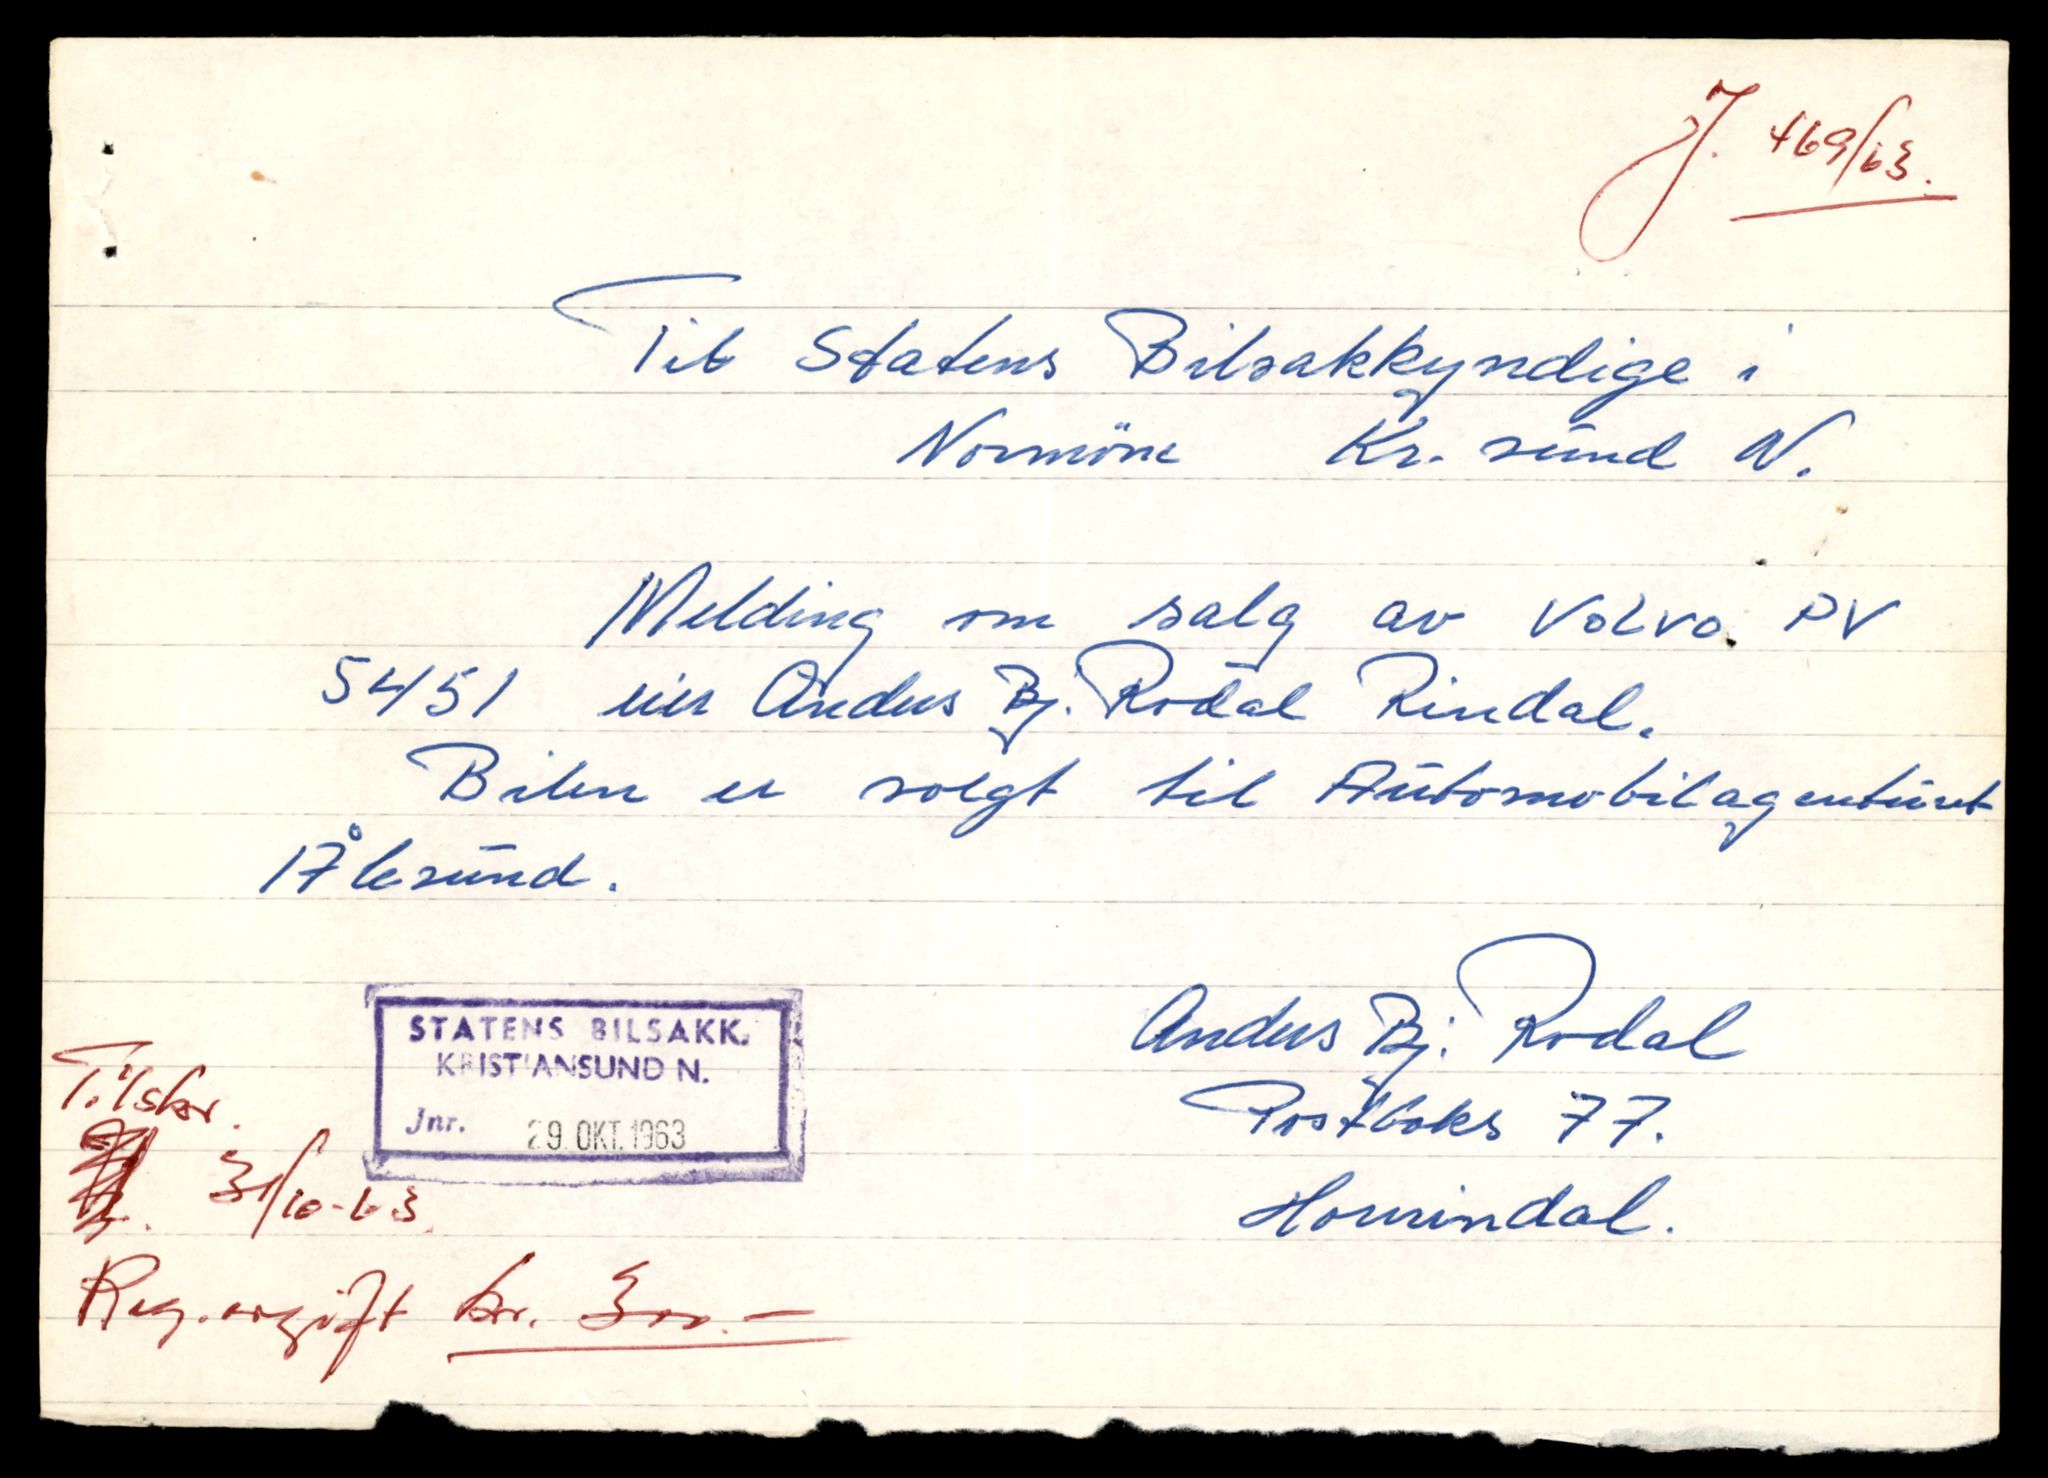 J. 469/63.
Til Statens Bilsakkyndige i
Normöre Kr. sund N.
Melding om salg av Volvo PV
5451 eier Anders Bj. Rodal Rindal.
Bilen er solgt til Automobilagenturet
i Ålesund.
Anders Bj. Rodal
Postboks 77.
STATENS BILSAKK.
KRISTIANSUND N.
Jnr. 29. OKT. 1963
Tilskr.
31/10-63.
Reg.avgift kr. 300.-